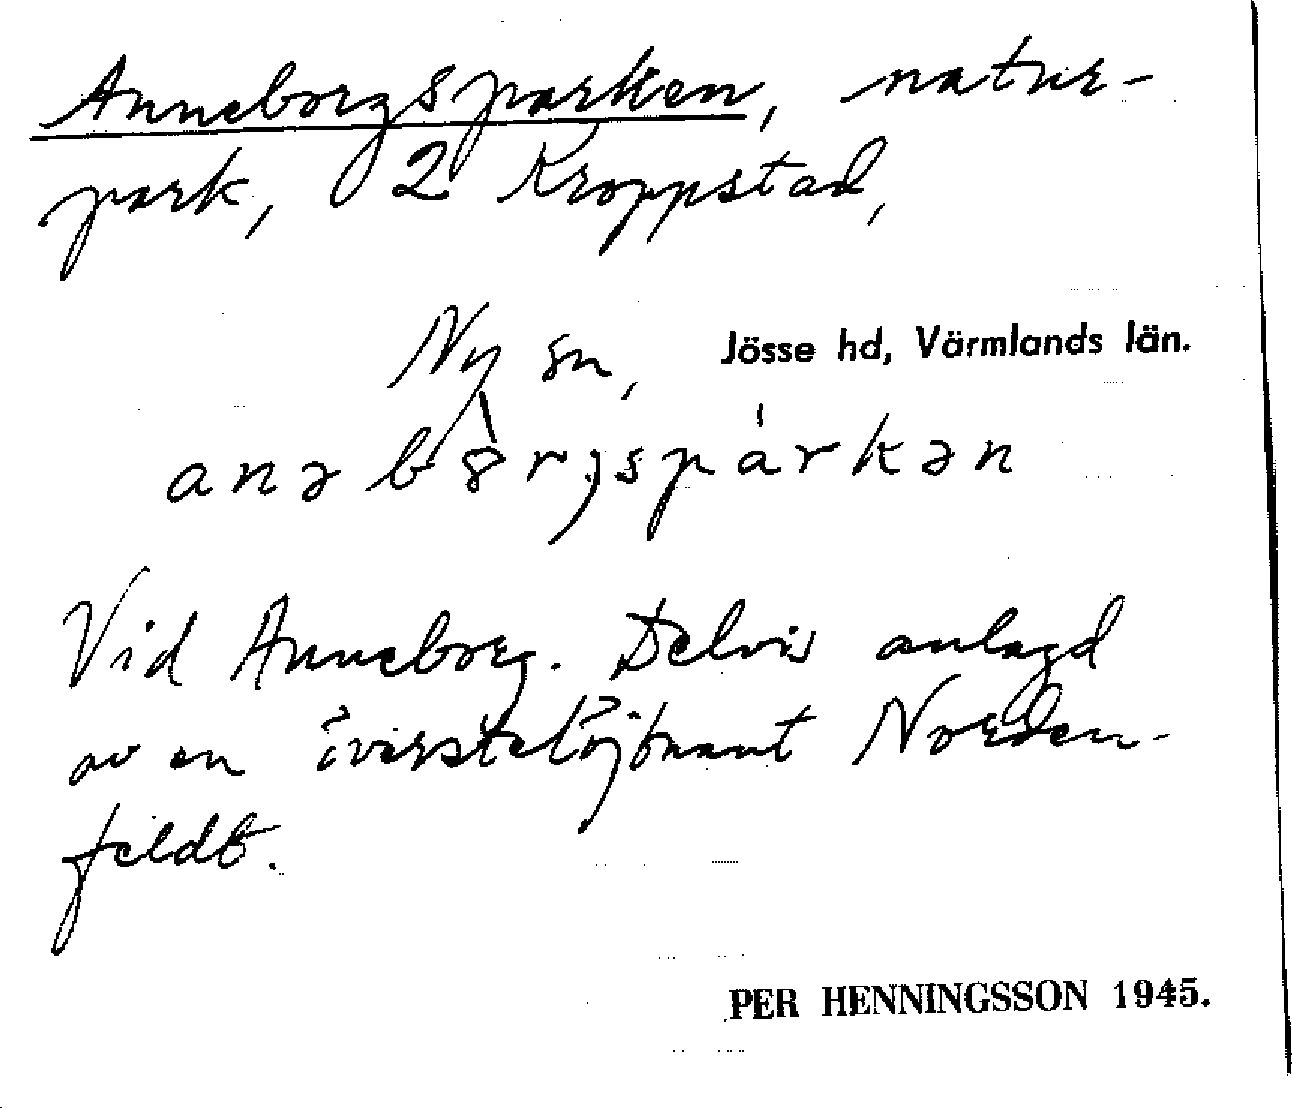 Anneborgsparken, natur-
park, 2 Kroppstad,
Ny sn, Jösse hd, Värmlands län.
anəb8̀rjspárkən
Vid Anneborg. Delvis anlagd
av en överstelöjtnant Norden-
feldt.
PER HENNINGSSON 1945.